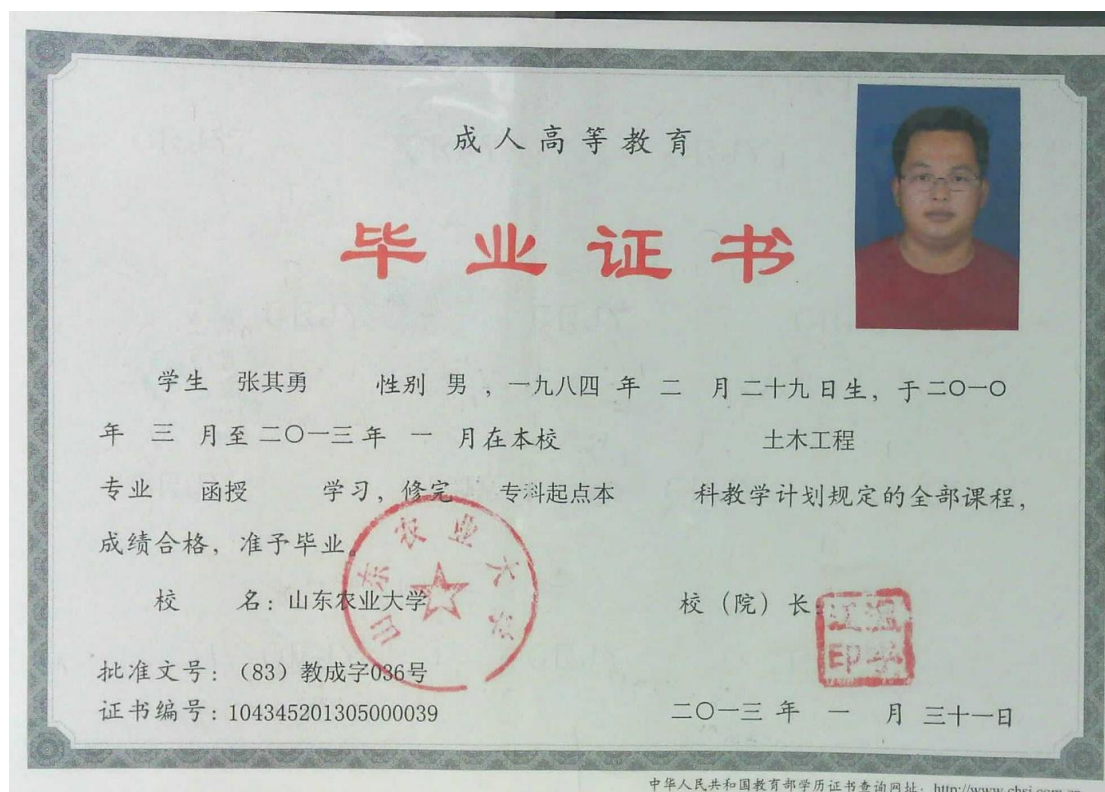 成人高等教育
毕业证书
学生 张其勇 性别 男 ，一九八四 年 二 月 二十九 日生，于 二〇一〇
年 三 月至 二〇一三 年 一 月在本校 土木工程
专业 函授 学习，修完 专科起点本 科教学计划规定的全部课程，
成绩合格，准予毕业。
山东农业大学
校 名：山东农业大学 校（院）长：
批准文号：（83）教成字036号
证书编号：104345201305000039 二〇一三 年 一 月 三十一日
中华人民共和国教育部学历证书查询网址：http://www.chsi.com.cn